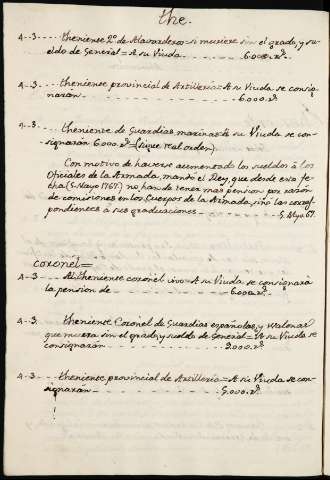 the.
4..3.....theniente 2º de Alavarderos si muriese sin el grado, y su-
eldo de General = A su Viuda......6.000..rˢ.
4..3....theniente provincial de Artilleria = A su Viuda se consig-
narán............6.000.rˢ
4..3....theniente de Guardias marinas = A su Viuda se con-
signarán 6.000 rˢ = (sigue real orden)
Con motivo de haverse aumentado los sueldos à los
Oficiales de la Armada, mandó el Rey, que desde esta fe-
cha (5. Mayo 1767.) no han de tener mas pension por razon
de comisiones en los Cuerpos de la Armada, sino las corres-
pondientes à sus graduaciones......5. Mayo 67.
coronel =
4..3....Al theniente coronél vivo = A su Viuda se consignará
la pension de............6.000.rˢ.
4..3....theniente Coronel de Guardias españolas, y walonas
que muera sin el grado, y sueldo de General = A su Viuda se
consignarán............9.000.rˢ
4..3....theniente provincial de Artilleria = A su Viuda se con-
signarán............5.000.rˢ.